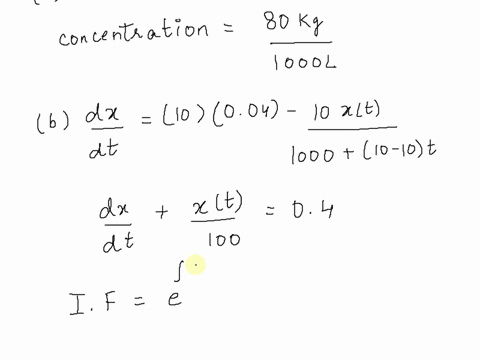 concentration = 80 Kg / 1000L
(b) dx/dt = (10)(0.04) - 10 x(t) / 1000 + (10-10)t
dx/dt + x(t)/100 = 0.4
I.F = e^∫